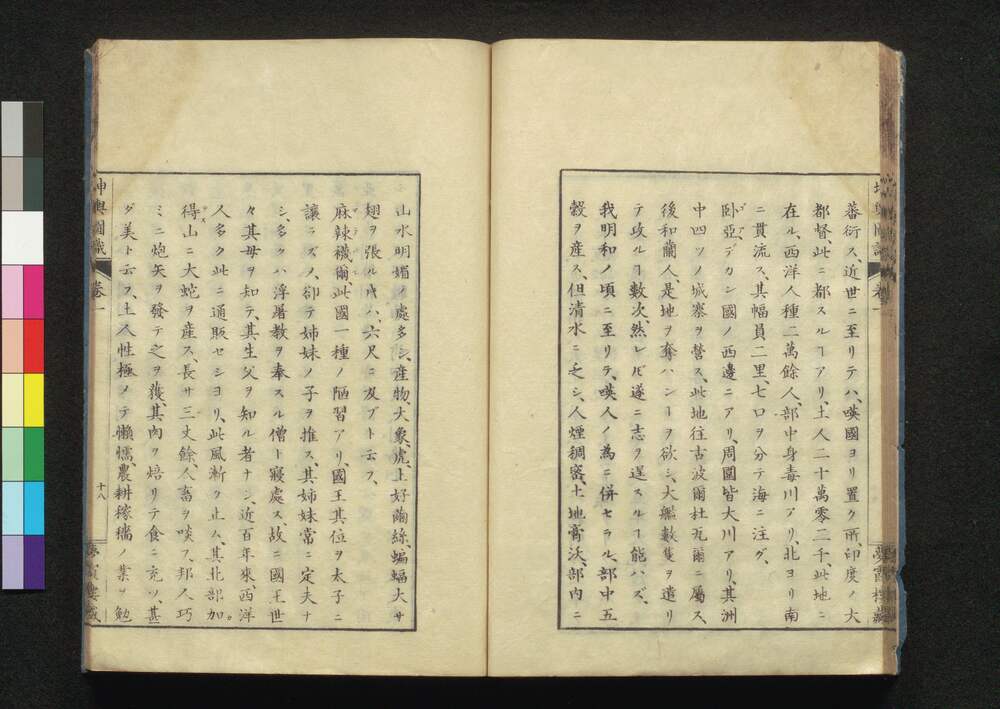 蕃衍ス、近世ニ至リテハ、暎國ヨリ置ク所、印度ノ大
都督、此ニ都スルヿアリ、土人二十萬零二千、此地ニ
在ル、西洋人種二萬餘人、部中身毒川アリ、北ヨリ南
ニ貫流ス、其幅員二里、七口ヲ分テ海ニ注グ、
卧亞、デカン國ノ西邊ニアリ、周圍皆大川アリ、其洲
中四ツノ城寨ヲ營ス、此地往古波爾杜瓦爾ニ屬ス、
後和蘭人、是地ヲ奪ハンヿヲ欲シ、大艦數隻ヲ遣リ
テ攻ルヿ數次、然レ𪜈遂ニ志ヲ逞スルヿ能ハズ、
我明和ノ頃ニ至リテ、暎人ノ為ニ併セラル、部中五
穀ヲ産ス、但清水ニ乏シ、人煙稠密、土地膏沃、部内ニ
山水明媚ノ處多シ、産物、大象、虎、上好繭絲、蝙蝠大サ
翅ヲ張ル𪜈ハ、六尺ニ及ブト云フ、
麻辣襪爾、此國一種ノ陋習アリ、國王其位ヲ太子ニ
讓ラズノ、卻テ姉妹ノ子ヲ推ス、其姉妹當ニ定夫ナ
シ、多クハ浮屠教ヲ奉スル僧ト寢處ス、故ニ國王世
々其母ヲ知テ、其生父ヲ知ル者ナシ、近百年來、西洋
人多ク此ニ通販セシヨリ、此風漸ク止ム、其北部加
得山ニ大蛇ヲ産ス、長サ三丈餘、人畜ヲ啖フ、邦人巧
ミニ炮矢ヲ發テ之ヲ獲、其肉ヲ焙リテ食ニ充ツ、甚
ダ美ト云フ、土人性極メテ懶惰、農耕稼穡ノ業ヲ勉
坤輿圖識
卷一
十八
夢霞樓藏